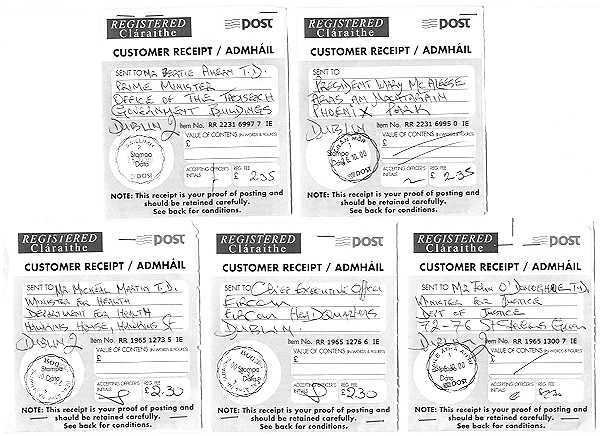 REGISTERED
Cláraithe
post
CUSTOMER RECEIPT / ADMHÁIL
SENT TO Mr BERTIE AHERN T.D.
PRIME MINISTER
OFFICE OF THE TAOISEACH
GOVERNMENT BUILDINGS
DUBLIN 2 Item No. RR 2231 6997 7 IE
VALUE OF CONTENTS (IN WORDS & FIGURES)
£
Stampa
Data
POST
ACCEPTING OFFICER'S INITIALS
REG. FEE
£ 2.35
NOTE: This receipt is your proof of posting and
should be retained carefully.
See back for conditions.
REGISTERED
Cláraithe
post
CUSTOMER RECEIPT / ADMHÁIL
SENT TO
PRESIDENT MARY Mc ALEESE
ARAS AN
PHOENIX PARK
DUBLIN Item No. RR 2231 6995 0 IE
VALUE OF CONTENTS (IN WORDS & FIGURES)
£
Stampa
Data
POST
ACCEPTING OFFICER'S INITIALS
REG. FEE
£ 2.35
NOTE: This receipt is your proof of posting and
should be retained carefully.
See back for conditions.
REGISTERED
Cláraithe
post
CUSTOMER RECEIPT / ADMHÁIL
SENT TO Mr. MICHEAL MARTIN T.D.
MINISTER FOR HEALTH
DEPARTMENT FOR HEALTH
HAWKINS HOUSE, HAWKINS ST
DUBLIN 2 Item No. RR 1965 1273 5 IE
VALUE OF CONTENTS (IN WORDS & FIGURES)
£
Stampa
Data
ACCEPTING OFFICER'S INITIALS
REG. FEE
£ 2.30
NOTE: This receipt is your proof of posting and
should be retained carefully.
See back for conditions.
REGISTERED
Cláraithe
post
CUSTOMER RECEIPT / ADMHÁIL
SENT TO CHIEF EXECUTIVE OFFICER
EIRCOM
EIRCOM HEADQUARTERS
DUBLIN.
Item No. RR 1965 1276 6 IE
VALUE OF CONTENTS (IN WORDS & FIGURES)
£
Stampa
Data
ACCEPTING OFFICER'S INITIALS
REG. FEE
£ 2.30
NOTE: This receipt is your proof of posting and
should be retained carefully.
See back for conditions.
REGISTERED
Cláraithe
post
CUSTOMER RECEIPT / ADMHÁIL
SENT TO Mr JOHN O'DONOGHUE T.D.
MINISTER FOR JUSTICE
DEPT OF JUSTICE
72-76 ST STEPHENS GREEN
DUBLIN 2 Item No. RR 1965 1300 7 IE
VALUE OF CONTENTS (IN WORDS & FIGURES)
£
Data
POST
ACCEPTING OFFICER'S INITIALS
REG. FEE
£
NOTE: This receipt is your proof of posting and
should be retained carefully.
See back for conditions.